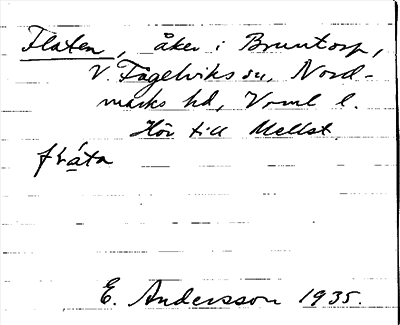 Flaten, åker i Bruntorp,
V. Fågelviks sn, Nord-
marks hd, Vrml l.
Hör till Mellst.
fláta
E. Andersson 1935.